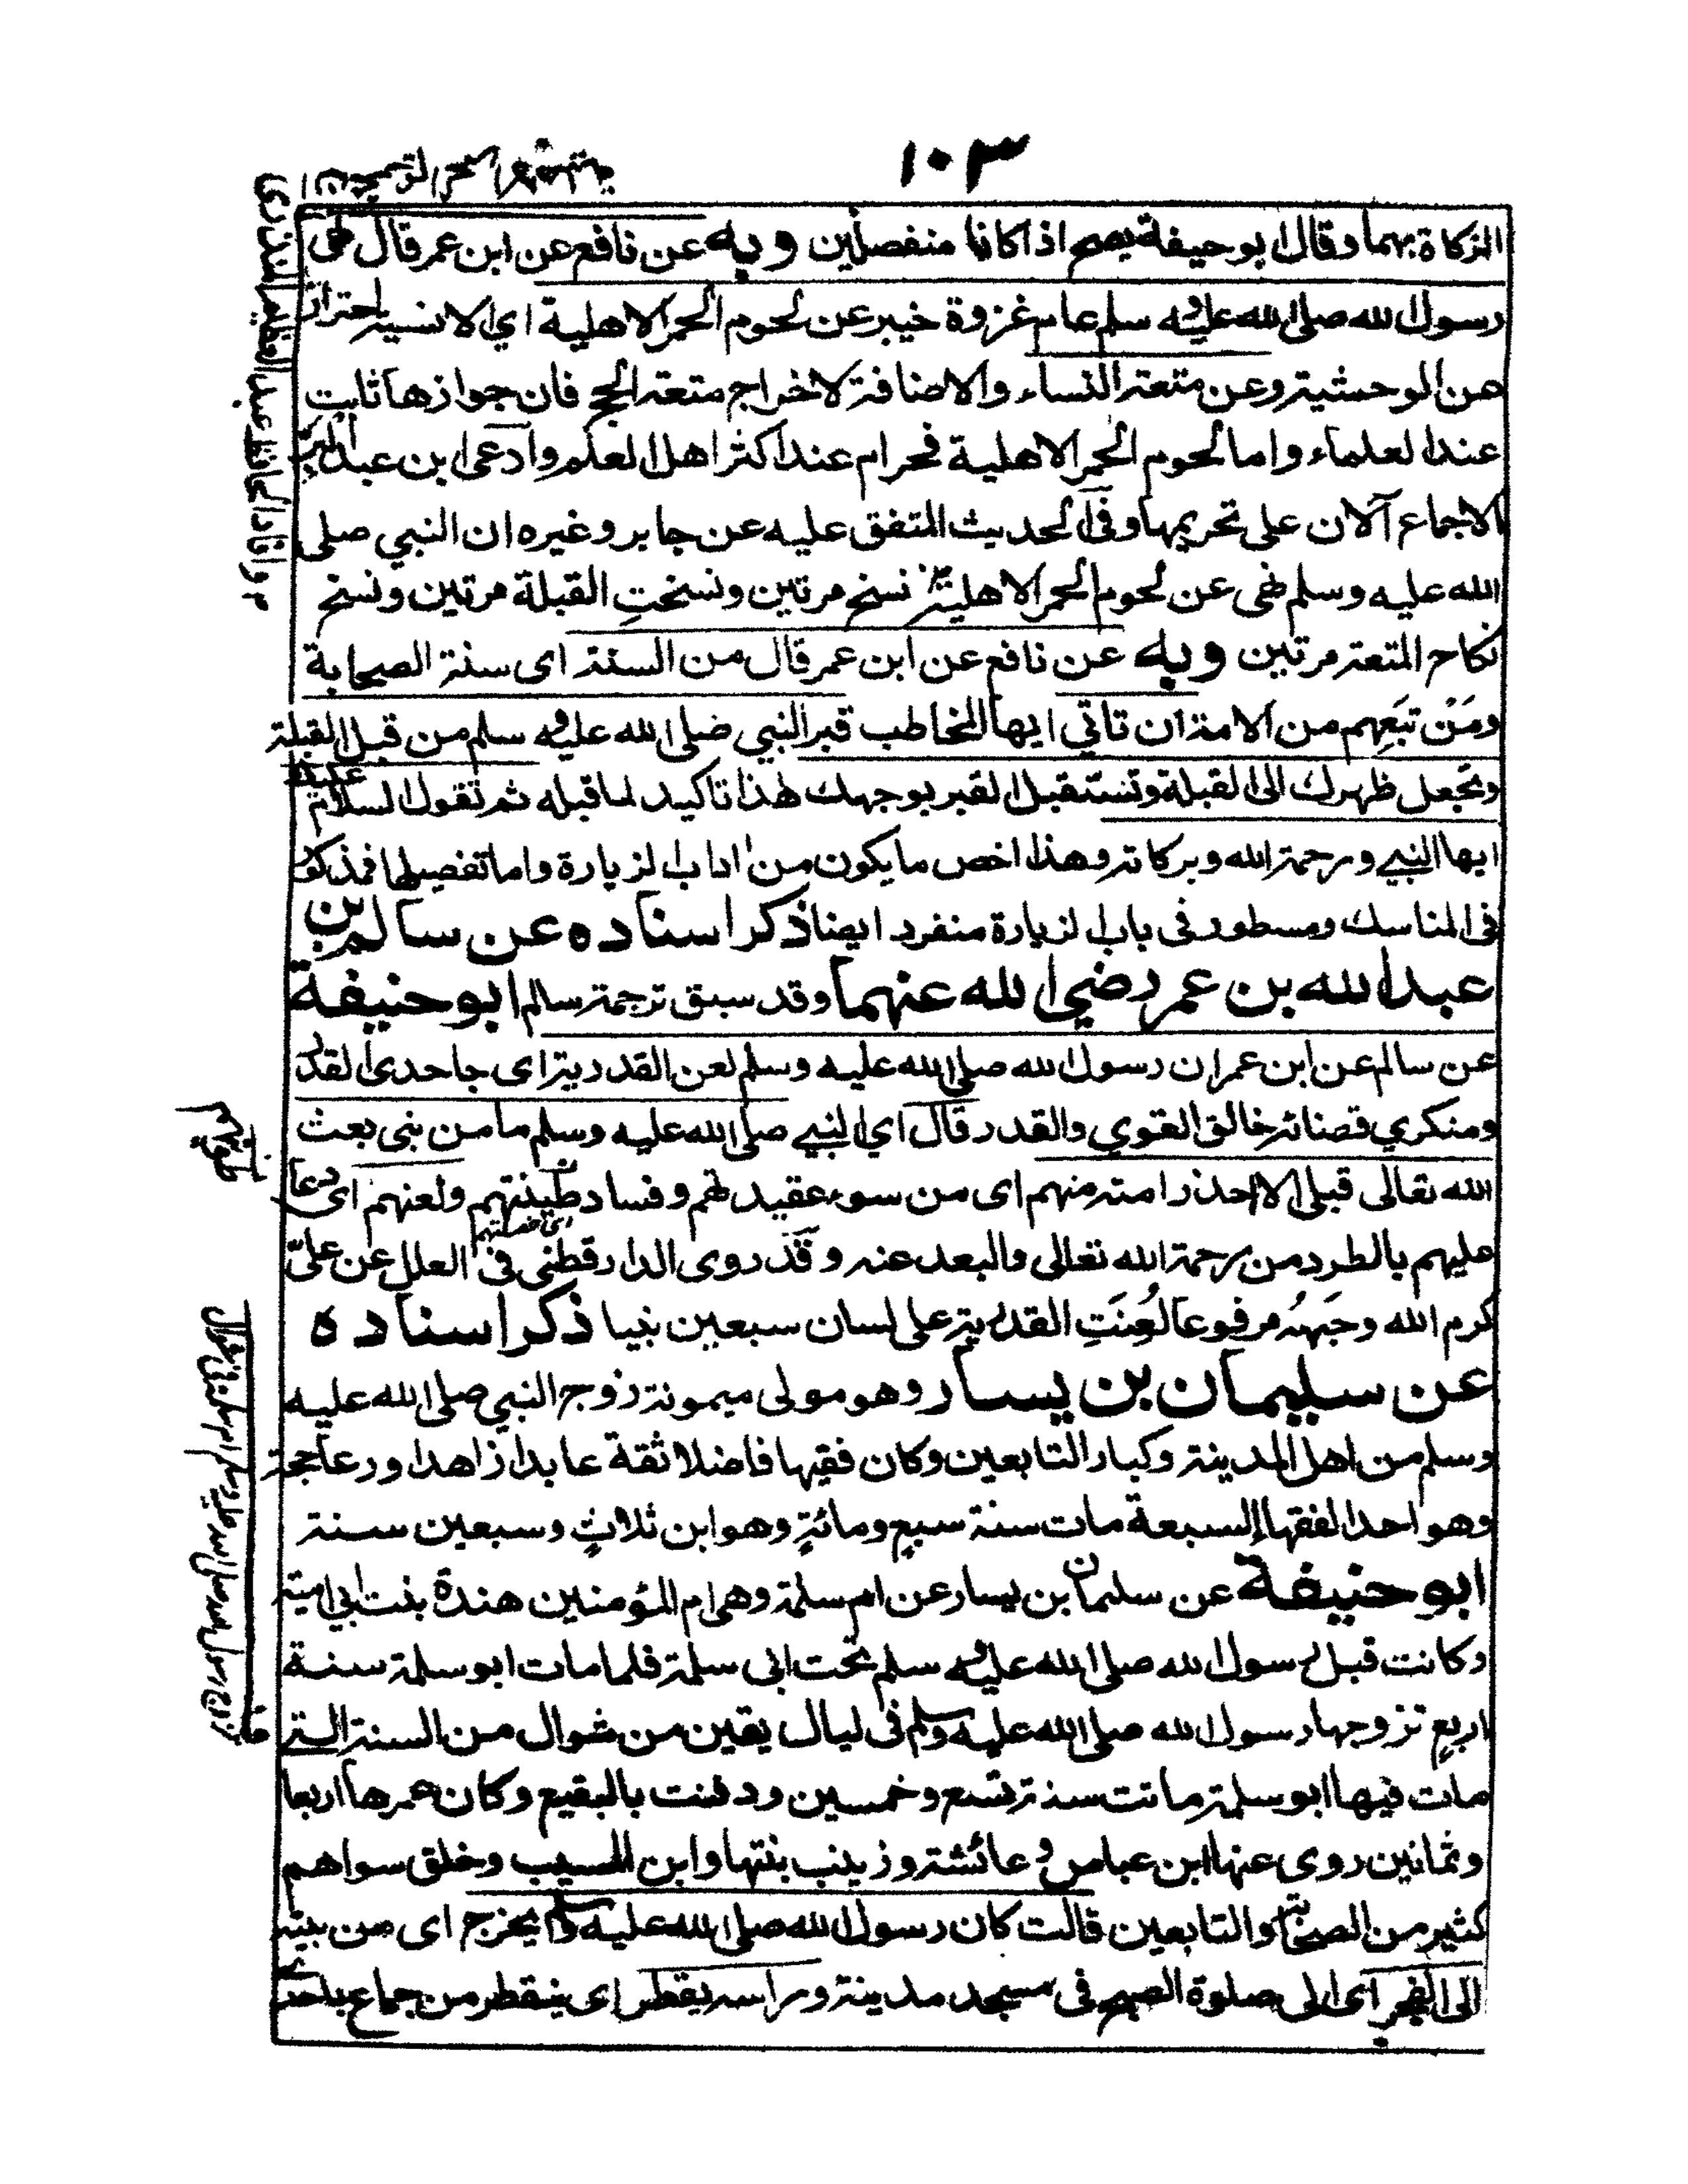 ١٠٣
الزكاة بهما وقال ابو حنيفة يصح اذا كانا منفصلين وبه عن نافع عن ابن عمر قال نهى
رسول الله صلى الله عليه وسلم عام غزوة خيبر عن لحوم الحمر الاهلية اي الانسية احتراز
عن الوحشية وعن متعة النساء والاضافة لاخراج متعة الحج فان جوازها ثابت
عند العلماء واما لحوم الحمر الاهلية فحرام عند اكثر اهل العلم وادعى ابن عبد البر
الاجماع آلان على تحريمها وفي الحديث المتفق عليه عن جابر وغيره ان النبي صلى
الله عليه وسلم نهى عن لحوم الحمر الاهلية نسخ مرتين ونسختِ القبلة مرتين ونسخ
نكاح المتعة مرتين وبه عن نافع عن ابن عمر قال من السنة اى سنة الصحابة
ومَنْ تبَعِهم من الامة ان تاتي ايها المخاطب قبر النبي صلى الله عليه وسلم من قبل القبلة
وتجعل ظهرك الى القبلة وتستقبل القبر بوجهك هذا تاكيد لما قبله ثم تقول السلام عليك
ايها النبي ورحمة الله وبركاته وهذا اخص ما يكون من اداب الزيارة واما تفصيلها فمذكور
فى المناسك ومسطور فى باب الزيارة منفرد ايضا ذكر اسناده عن سالم بن
عبد الله بن عمر رضي الله عنهما وقد سبق ترجمة سالم ابو حنيفة
عن سالم عن ابن عمر ان رسول الله صلى الله عليه وسلم لعن القدرية اى جاحدى القدر
ومنكري قضائه خالق القوي والقدر قال اي النبي صلى الله عليه وسلم ما من نبى بعث
الله تعالى قبلى الا حذر امته منهم اى من سوء عقيدتهم وفساد طينتهم ولعنهم اى دعا
عليهم بالطرد من رحمة الله تعالى والبعد عنه وقد روى الدارقطنى فى العلل عن علىّ
كرم الله وجَهَهُ مرفوعا لُعِنَتِ القدرية على لسان سبعين نبيا ذكر اسناده
عن سليمان بن يسار وهو مولى ميمونة زوج النبي صلى الله عليه
وسلم من اهل المدينة وكبار التابعين وكان فقيها فاضلا ثقة عابدا زاهدا ورعا حجة
وهو احد الفقهاء السبعة مات سنة سبعٍ ومائةٍ وهو ابن ثلاثٍ وسبعين سنة
ابو حنيفة عن سليمان بن يسار عن ام سلمة وهى ام المؤمنين هندة بنت ابي امية
وكانت قبل رسول الله صلى الله عليه وسلم تحت ابى سلمة فلما مات ابو سلمة سنة
اربعٍ تزوجها رسول الله صلى الله عليه وسلم فى ليال يقين من شوال من السنة التى
مات فيها ابو سلمة ماتت سنة تسع وخمسين ودفنت بالبقيع وكان عمرها اربعا
وثمانين روى عنها ابن عباس وعائشة وزينب بنتها وابن المسيب وخلق سواهم
كثير من الصحابة والتابعين قالت كان رسول الله صلى الله عليه وسلم يخرج اى من بيته
الى الفجر اى الى صلوة الصبح فى مسجد مدينة وراسه يقطر اى ينقطر من جماع
وافاد الحافظ عبد العظيم المنذرى